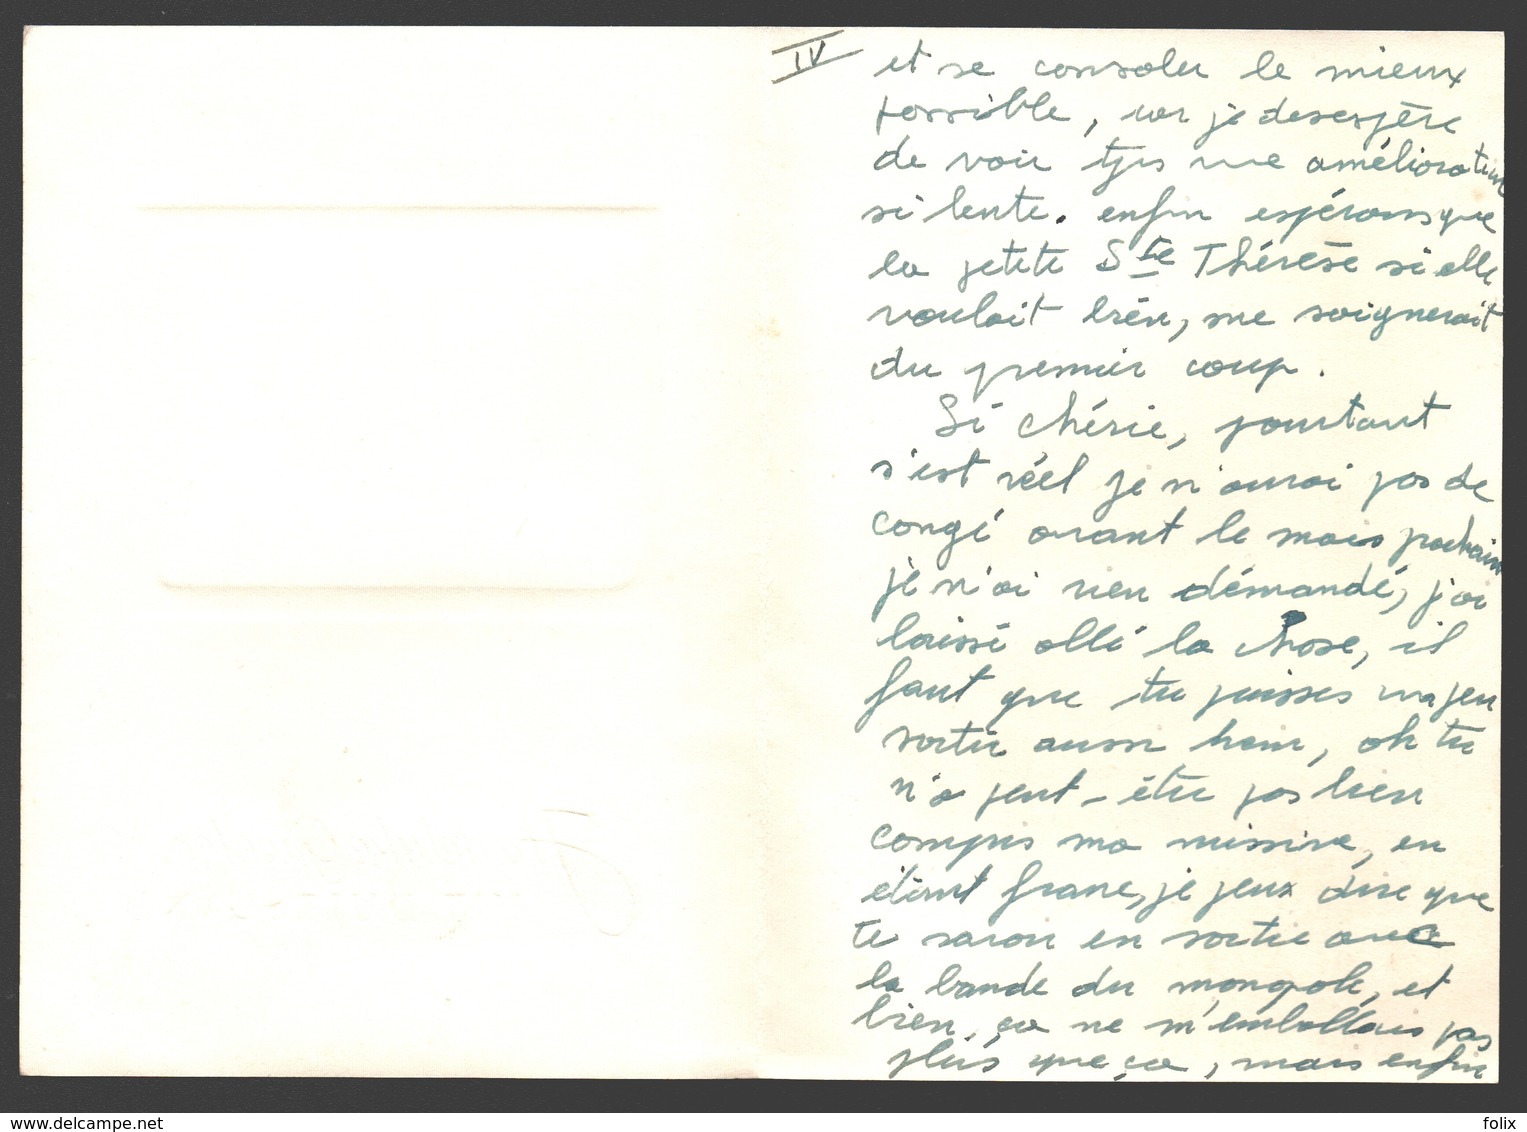 IV
et se consoler le mieux
possible, car je desespère
de voir tjrs une amélioration
si lente. enfin espérons que
la petite Ste Thérèse si elle
voulait bien, me soignerait
du premier coup.
Si chérie, pourtant
s'est réel je n'aurai pas de
congé avant le mois prochain
je n'ai rien démandé, j'ai
laissé allé la chose, il
faut que tu puisses un peu
sortir aussi hein, oh tu
n'a peut-être pas bien
compris ma missive, en
étant franc, je peux dire que
te savoir en sortie avec
la bande du mongole, et
bien, ça ne m'emballais pas
plus que ça, mais enfin
felix
www.delcampe.net